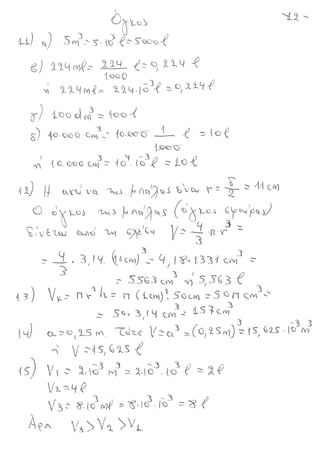 Όγκος 12-
11) α) 5m³ = 5·10³ l = 5000 l
β) 224ml = 224/1000 l = 0,224 l
ή 224ml = 224·10⁻³ l = 0,224 l
γ) 100dm³ = 100 l
δ) 10.000 cm³ = 10.000 1/1000 l = 10 l
ή 10.000 cm³ = 10⁴ 10⁻³ l = 10 l
12) Η ακτίνα της μπάλας είναι r = δ/2 = 11cm
Ο όγκος της μπάλας (όγκος σφαίρας)
δίνεται από τη σχέση V = 4/3 π·r³ =
= 4/3 · 3,14 · (11cm)³ = 4,18·1331 cm³ =
= 5563cm³ ή 5,563 l
13) Vκ = πr²h = π (1cm)² 50cm = 50π cm³ =
= 50·3,14 cm³ = 157cm³
14) α = 0,25m. Τότε V = α³ = (0,25m)³ = 15,625·10⁻³m³
ή V = 15,625 l
15) V₁ = 2·10⁻³ m³ = 2·10⁻³·10³ l = 2 l
V₂ = 4 l
V₃ = 8·10³ ml = 8·10³·10⁻³ = 8 l
Άρα V₃ > V₂ > V₁